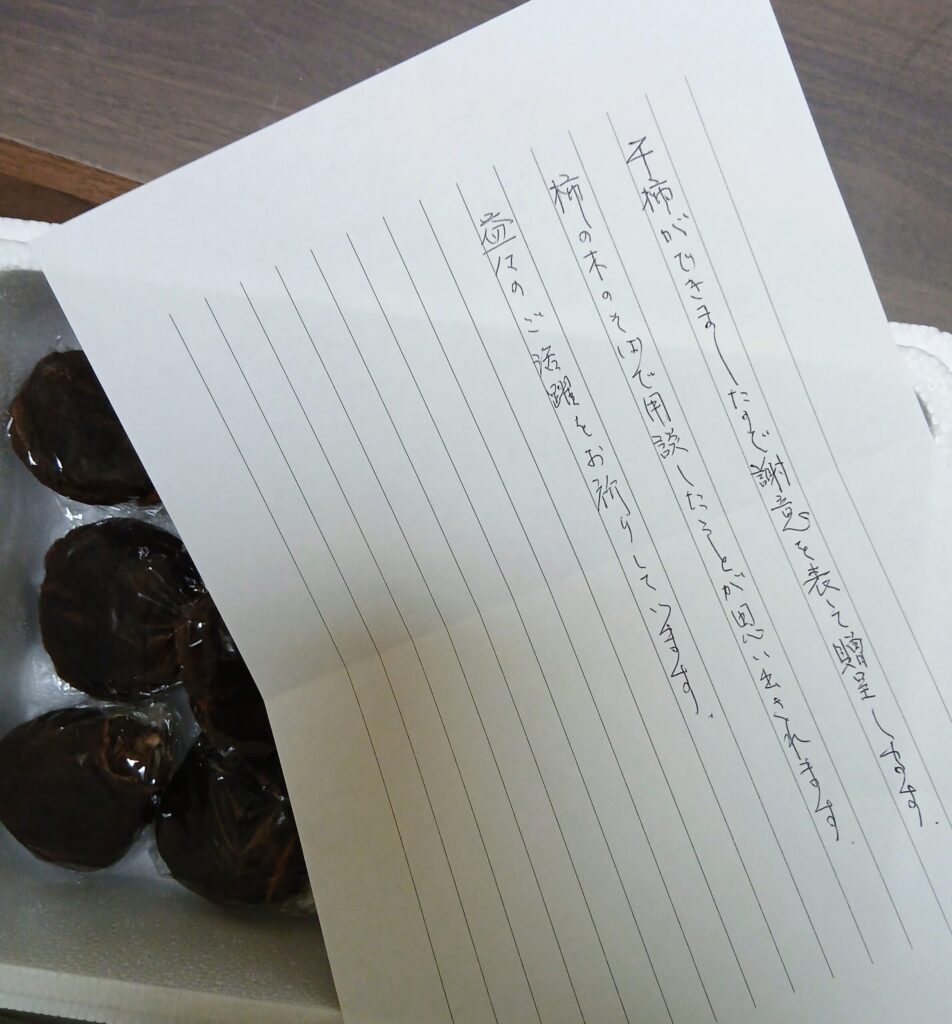 干柿ができましたので謝意を表して贈呈します.
柿の木のそばで用談したことが思い出されます.
益々のご活躍をお祈りしています.